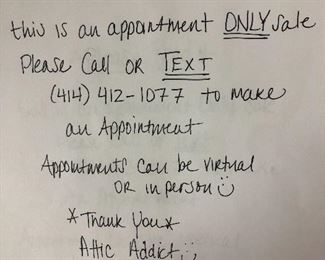 this is an appointment ONLY sale
Please Call OR TEXT
(414) 412-1077 to make
an Appointment
Appointments can be virtual
OR in person
*Thank You*
Attic Addict